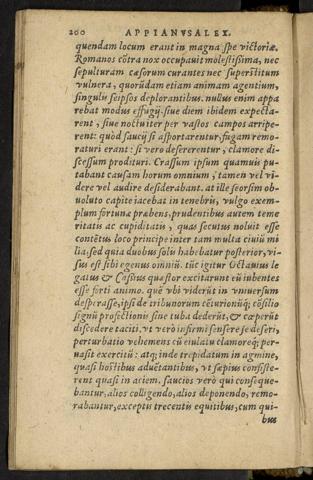 200 APPIANVS ALEX.
quendam locum erant in magna spe victoriæ.
Romanos cõtra nox occupauit molestissima, nec
sepulturam cæsorum curantes nec superstitum
vulnera, quorũdam etiam animam agentium,
singulis seipsos deplorantibus. nullus enim appa
rebat modus effugij. siue diem ibidem expecta-
rent, siue noctu iter per vastos campos arripe-
rent: quòd saucij si asportarentur, fugam remo-
raturi erant: si vero desererentur, clamore di-
scessum prodituri. Crassum ipsum quamuis pu-
tabant causam horum omnium, tamen vel vi-
dere vel audire desiderabant. at ille seorsim ob-
uoluto capite iacebat in tenebris, vulgo exem-
plum fortunæ præbens, prudentibus autem teme
ritatis ac cupiditatis, quas secutus noluit esse
contẽtus loco principe inter tam multa ciuiũ mi
lia, sed quia duobus solis habebatur posterior, vi-
sus est sibi egenus omniũ. tũc igitur Octauius le
gatus & Cassius quæstor excitarunt eũ iubentes
esse forti animo. quẽ vbi viderũt in vniuersum
desperasse, ipsi de tribunorum cẽturionũq; cõsilio
signũ profectionis sine tuba dederũt, & cœperũt
discedere taciti. vt verò infirmi sensere se deseri,
perturbatio vehemens cũ eiulatu clamoreq; per-
uasit exercitũ: atq; inde trepidatum in agmine,
quasi hostibus aduẽtantibus, vt sæpius consiste-
rent quasi in aciem. saucios verò qui conseque-
bantur, alios colligendo, alios deponendo, remo-
rabantur, exceptis trecentis equitibus, cum qui-
bus